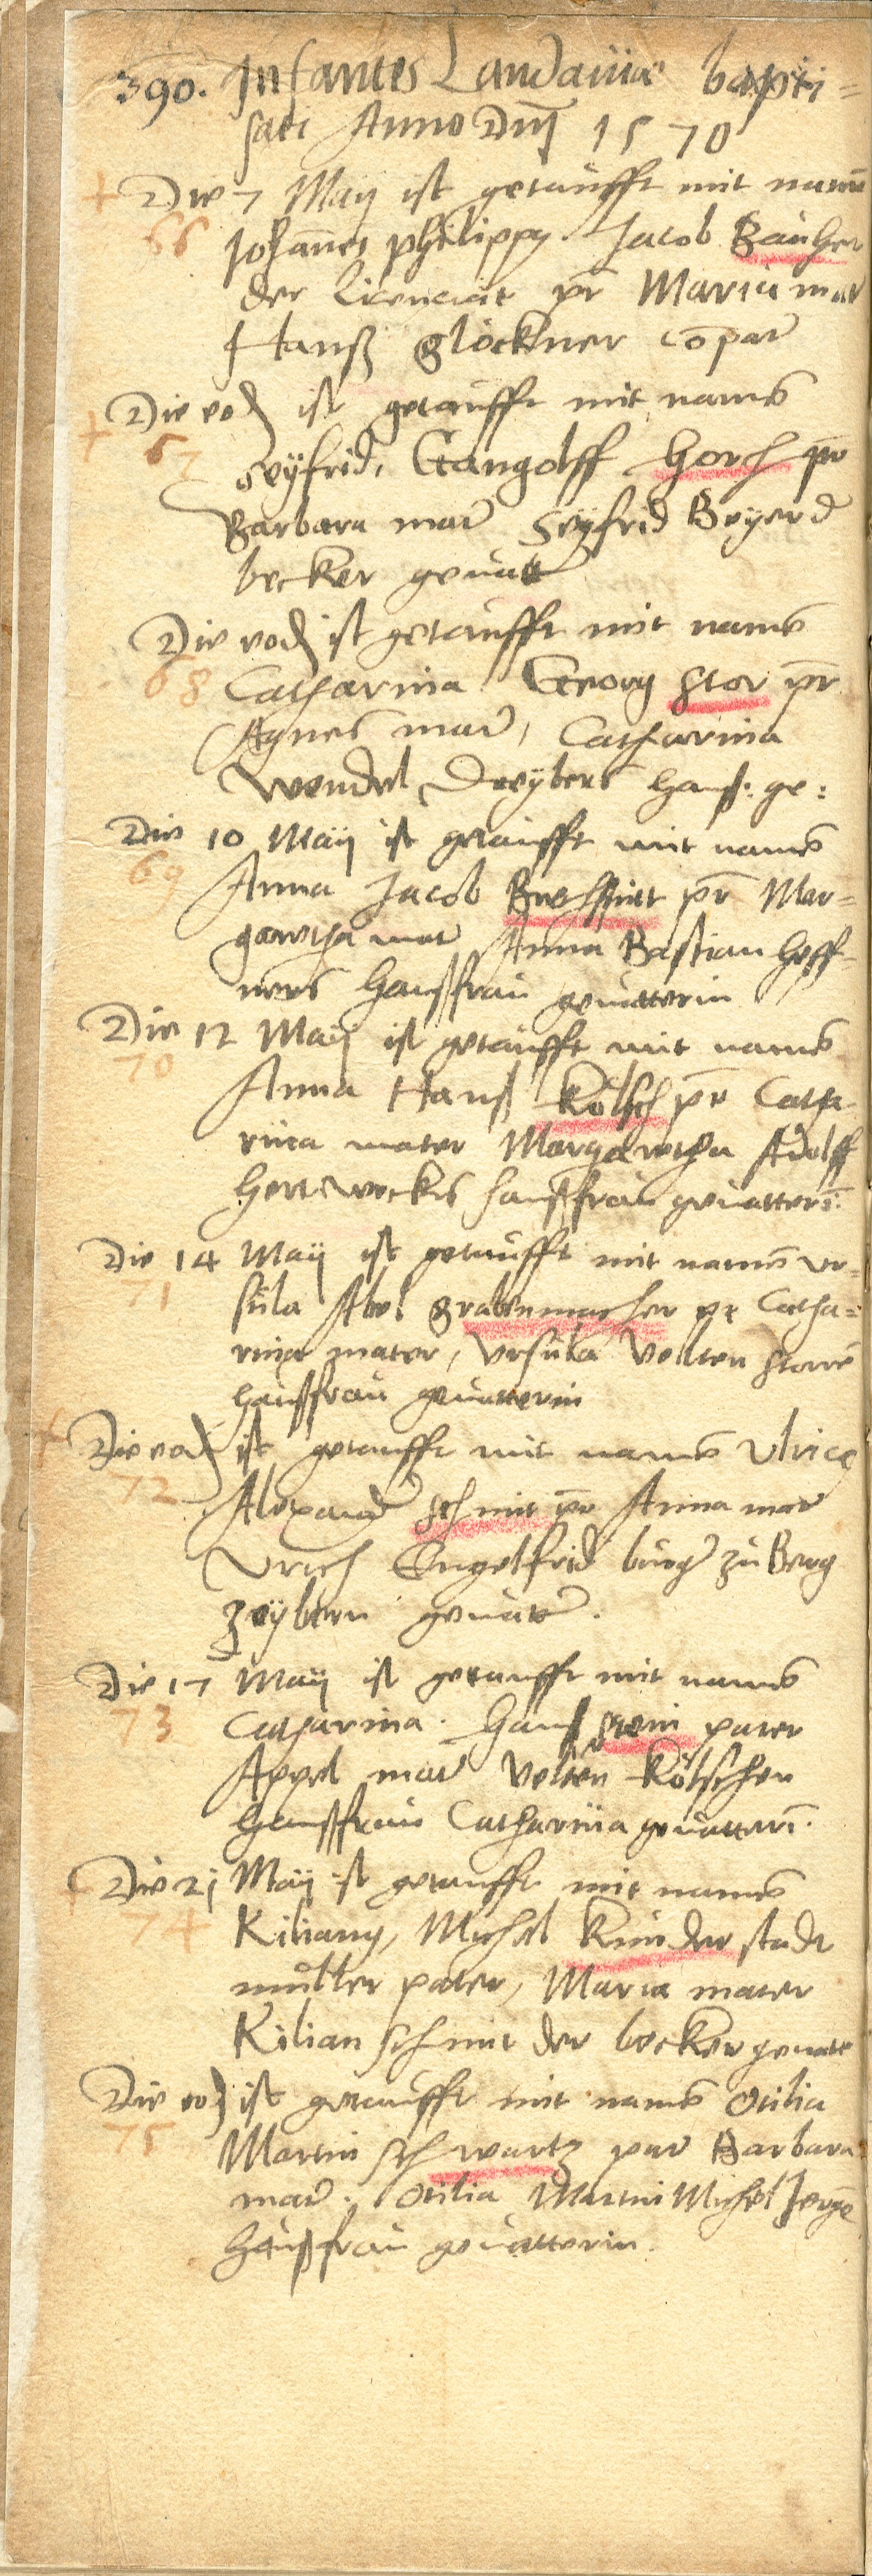 390. Infantes Landauiæ bapti=
sati Anno Dnĩ 1570
+ Die 7 Maÿ ist getaufft mit namẽ
66 Johannes philippꝰ Jacob
der licenciat pr̃ Maria mat̃
Hanß glöckner cõpat̃
+ Die eod ist getaufft mit namẽ
67 Seÿfrid, Gangolff Horch pr̃
Barbara mat̃ Seÿfrid Beyer d
becker geuatt̃
Die eod ist getaufft mit namẽ
68 Catharina Georg Stor pr̃
Agnes mat̃, Catharina
Wendel Dreÿbers hauß: ge:
Die 10 Maÿ ist getaufft mit namẽ
69 Anna Jacob pr̃ Mar=
garetha mat Anna Bastian Heff=
ners haußfrau geuatterin
Die 12 Maÿ ist getaufft mit namẽ
70 Anna Hanß Kölsch pr̃ Catha
rina mater Margaretha Adolff
Hertwecks haußfrau geuatterĩ
Die 14 Maÿ ist getaufft mit namẽ Vr=
71 sula Abel grabenmacher pr̃ Catha=
rina mater, Vrsula Velten Storrẽ
haußfrau geuatterin
+ Die eod ist getaufft mit namẽ Vlrice
72 Alexand̃ Schmit pr̃ Anna mat̃
Vrich Engelfrid burg̃ zu Berg
zeÿbern geuatt̃.
Die 17 Maÿ ist getaufft mit namẽ
73 Catharina. Hanß Stein pater
Appel mat̃ Velten Kölschen
haußfrau Catharina geuatterĩ.
+ Die 21 Maÿ ist getaufft mit namẽ
74 Kilianꝰ, Michel Kinder stadt
müller pater, Maria mater
Kilian schmit der becker geuatt̃
Die eod ist getaufft mit namẽ Otilia
75 Martin schwartz pat̃ Barbara
mat̃. Otilia Martin Michel Jergẽ
haußfrau geuatterin.